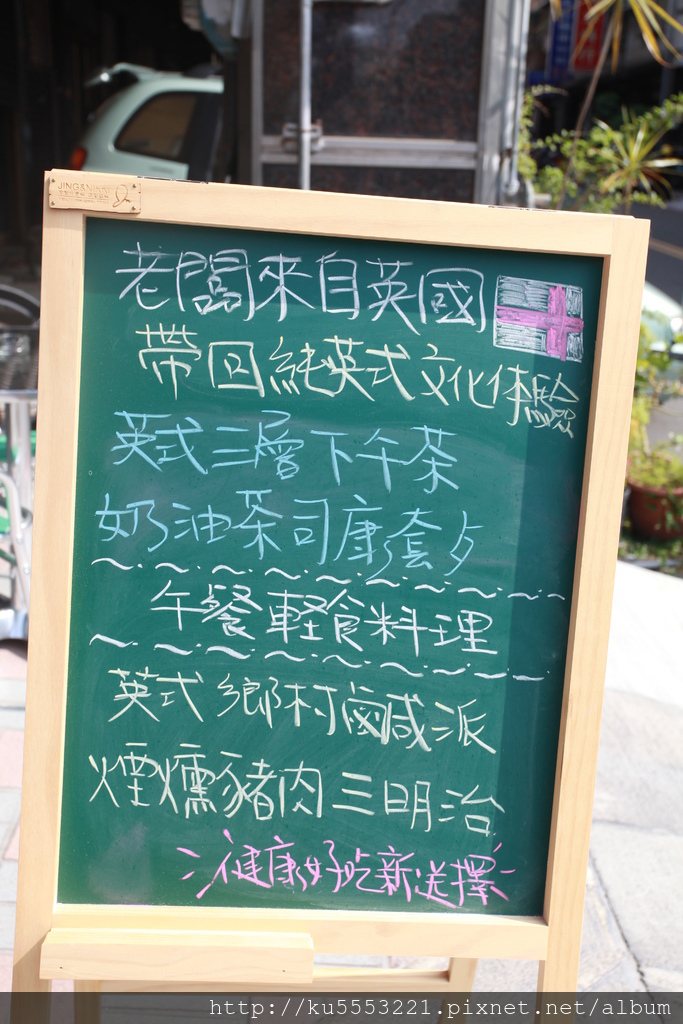 JING&NING
老闆來自英國
帶回純英式文化体驗
英式三層下午茶
奶油茶司康套点
午餐軽食料理
英式鄉村鹹派
煙燻豬肉三明治
健康好吃新送擇
http://ku5553221.pixnet.net/album